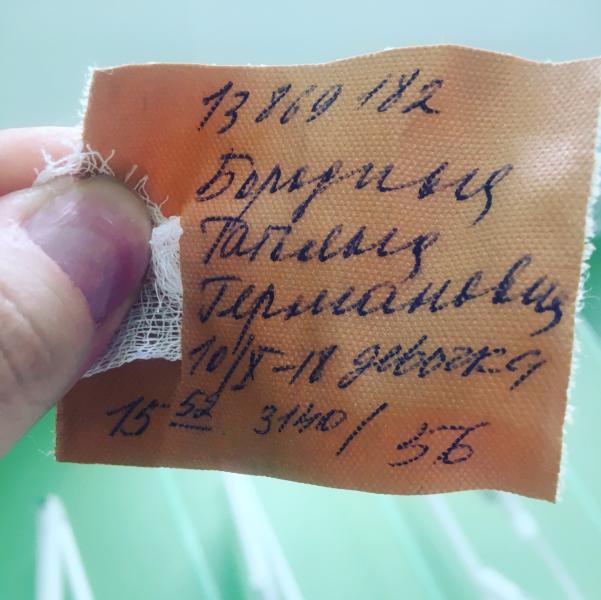 13869 182
Бородина
Татьяна
Германовна
10/X-18 девочка
15 52 3140/56